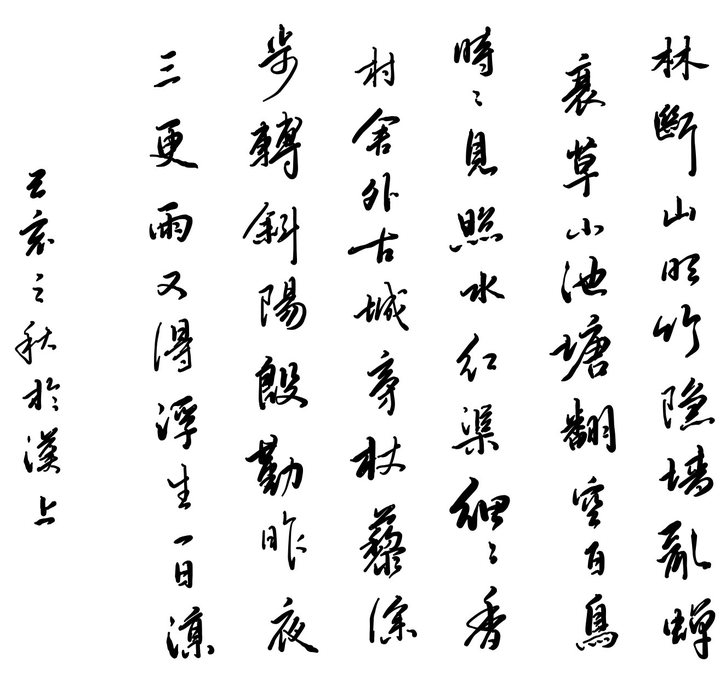 林斷山明竹隱墻亂蟬
衰草小池塘翻空白鳥
時〻見照水紅渠細〻香
村舍外古城旁杖藜徐
步轉斜陽殷勤昨夜
三更雨又得浮生一日涼
己亥之秋於漢上